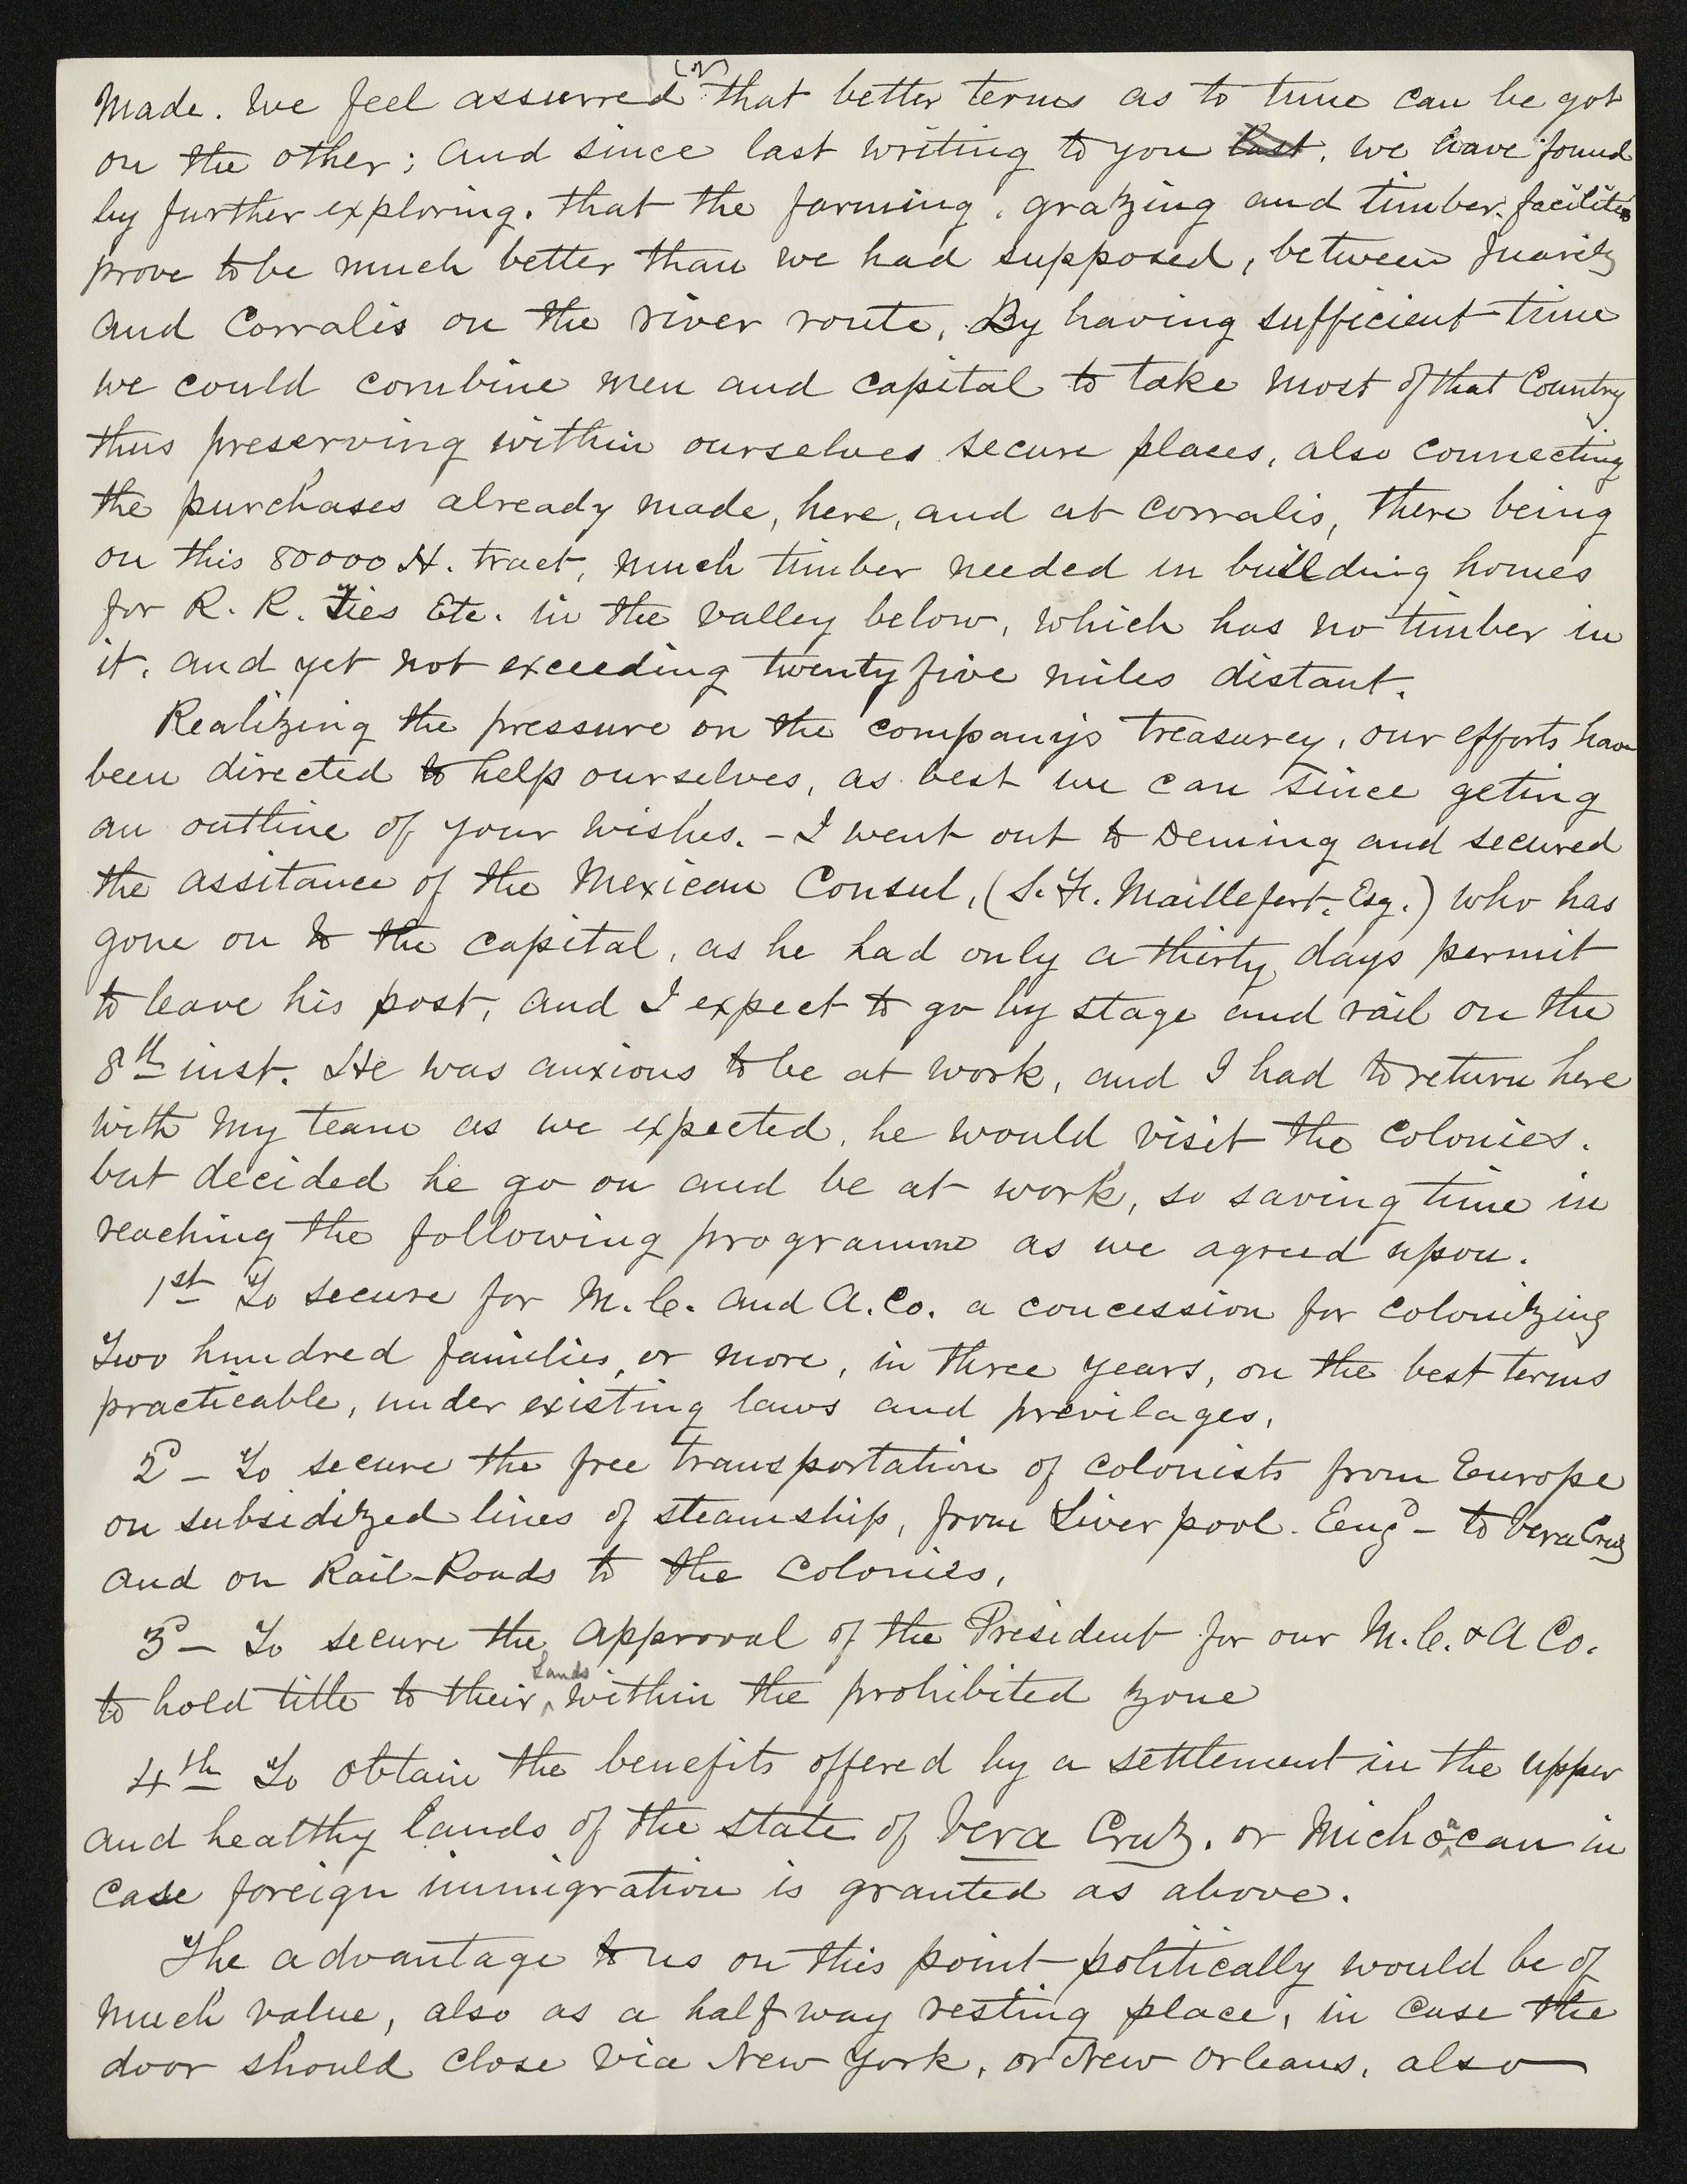 (2)
Made. We feel assurred that better terms as to time can be got
on the other; and since last writing to you last, we have found
by further exploring. that the farming, grazing and timber facilities
prove to be much better than we had supposed, between Juaritz
and Corralis on the river route, By having sufficient time
we could combine men and capital to take most of that Country
thus preserving within ourselves secure places, also connecting
the purchases already made, here, and at Corralis, there being
on this 80000 H. tract, much timber needed in building homes
for R. R. Ties Etc. in the valley below, which has no timber in
it. and yet not exceeding twenty five miles distant.
Realizing the pressure on the company's treasurey, our efforts have
been directed to help ourselves, as best we can since geting
an outline of your wishes. - I went out to Deming and secured
the assitance of the Mexican Consul, (S. F. Maillefert. Esq.) who has
gone on to the capital, as he had only a thirty days permit
to leave his post, and I expect to go by stage and rail on the
8th inst. He was anxious to be at work, and I had to return here
with my team as we expected, he would visit the colonies.
but decided he go on and be at work, so saving time in
reaching the following programme as we agreed upon.
1st To secure for M. C. and A. Co. a concession for colonizing
Two hundred families, or more, in three years, on the best terms
practicable, under existing laws and previlages,
2d - To secure the free transportation of colonists from Europe
on subsidized lines of steamship, from Liverpool. Eng'd - to Vera Cruz
and on Rail-Roads to the colonies,
3d - To secure the approval of the President for our M. C. & A Co.
to hold title to their ^Lands within the prohibited zone
4th To obtain the benefits offered by a settlement in the upper
and healthy lands of the state of Vera Cruz. or Michoacan in
case foreign immigration is granted as above.
The advantage to us on this point politically would be of
much value, also as a half way resting place, in case the
door should close via New York, or New Orleans, also